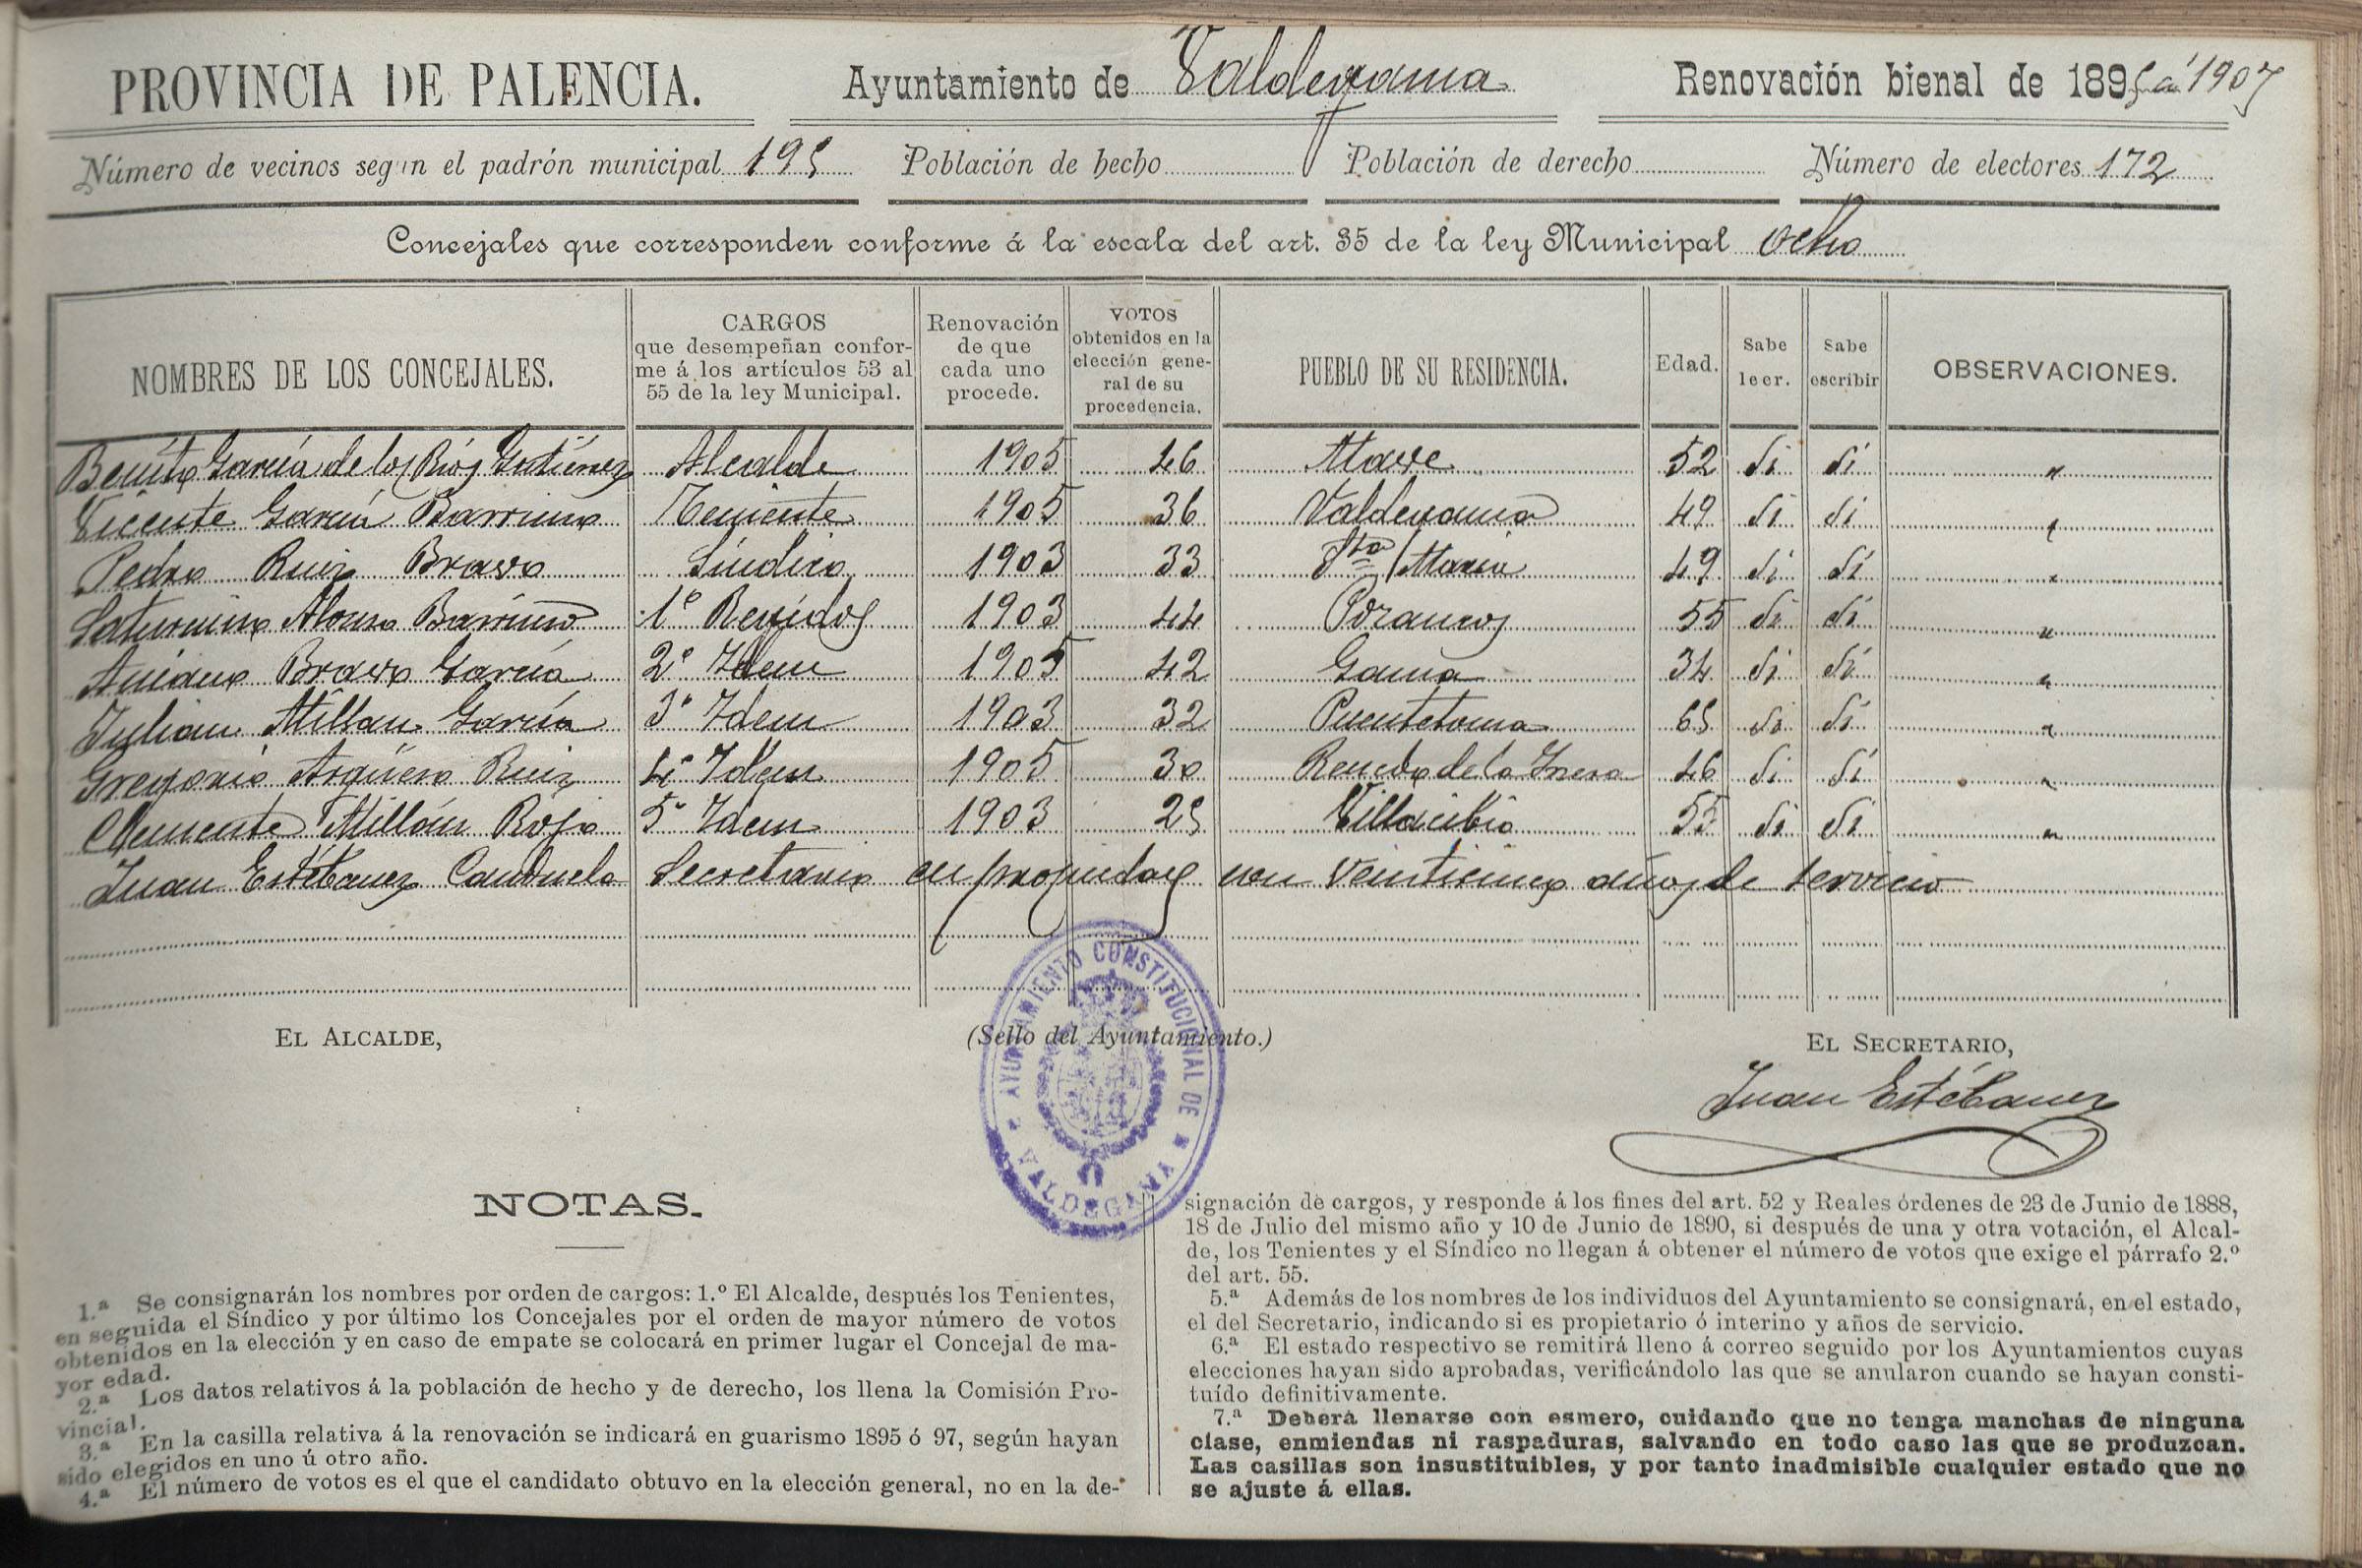 PROVINCIA DE PALENCIA. Ayuntamiento de Valdegama Renovación bienal de 1895 á 1907
Número de vecinos según el padrón municipal 195 Población de hecho Población de derecho Número de electores 172
Concejales que corresponden conforme á la escala del art. 35 de la ley Municipal ocho
NOMBRES DE LOS CONCEJALES. CARGOS que desempeñan conforme á los artículos 53 al 55 de la ley Municipal. Renovación de que cada uno procede. VOTOS obtenidos en la elección general de su procedencia. PUEBLO DE SU RESIDENCIA. Edad. Sabe leer. Sabe escribir OBSERVACIONES.
Benito García de los Ríos Gutiérrez Alcalde 1905 46 Mave 52 Si Sí "
Vicente García Barriuso Teniente 1905 36 Valdegama 49 Si Si "
Pedro Ruiz Bravo Síndico 1903 33 Sta María 49 Si Sí "
Saturnino Alonso Barriuso 1º Regidor 1903 44 Pozancos 55 Si Si "
Aniano Bravo García 2º Idem 1905 42 Gama 34 Si Sí "
Julian Millan García 3º Idem 1903 32 Puentetoma 65 Si Sí "
Gregorio Argüeso Ruiz 4º Idem 1905 30 Renedo de la Inera 46 Si Sí "
Clemente Millán Rojo 5º Idem 1903 25 Villacibio 55 Si Sí "
Juan Estébanez Canduela Secretario en propiedad con veinticinco años de servicio
EL ALCALDE, (Sello del Ayuntamiento.) EL SECRETARIO,
AYUNTAMIENTO CONSTITUCIONAL DE VALDEGAMA
Juan Estébanez
NOTAS.
1.ª Se consignarán los nombres por orden de cargos: 1.º El Alcalde, después los Tenientes,
en seguida el Síndico y por último los Concejales por el orden de mayor número de votos
obtenidos en la elección y en caso de empate se colocará en primer lugar el Concejal de ma-
yor edad.
2.ª Los datos relativos á la población de hecho y de derecho, los llena la Comisión Pro-
vincial.
3.ª En la casilla relativa á la renovación se indicará en guarismo 1895 ó 97, según hayan
sido elegidos en uno ú otro año.
4.ª El número de votos es el que el candidato obtuvo en la elección general, no en la de-
signación de cargos, y responde á los fines del art. 52 y Reales órdenes de 23 de Junio de 1888,
18 de Julio del mismo año y 10 de Junio de 1890, si después de una y otra votación, el Alcal-
de, los Tenientes y el Síndico no llegan á obtener el número de votos que exige el párrafo 2.º
del art. 55.
5.ª Además de los nombres de los individuos del Ayuntamiento se consignará, en el estado,
el del Secretario, indicando si es propietario ó interino y años de servicio.
6.ª El estado respectivo se remitirá lleno á correo seguido por los Ayuntamientos cuyas
elecciones hayan sido aprobadas, verificándolo las que se anularon cuando se hayan consti-
tuído definitivamente.
7.ª Deberá llenarse con esmero, cuidando que no tenga manchas de ninguna
clase, enmiendas ni raspaduras, salvando en todo caso las que se produzcan.
Las casillas son insustituibles, y por tanto inadmisible cualquier estado que no
se ajuste á ellas.